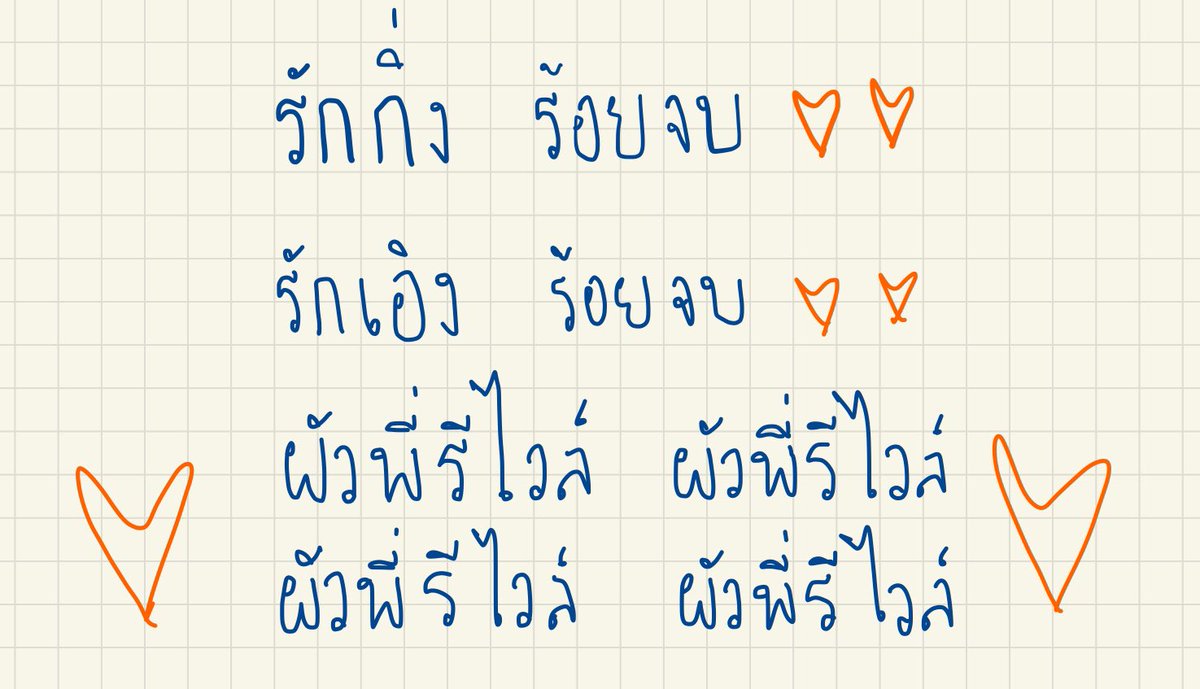 รักกิ่ง ร้อยจบ
รักเอิง ร้อยจบ
ผัวพี่รีไวล์ ผัวพี่รีไวล์
ผัวพี่รีไวล์ ผัวพี่รีไวล์